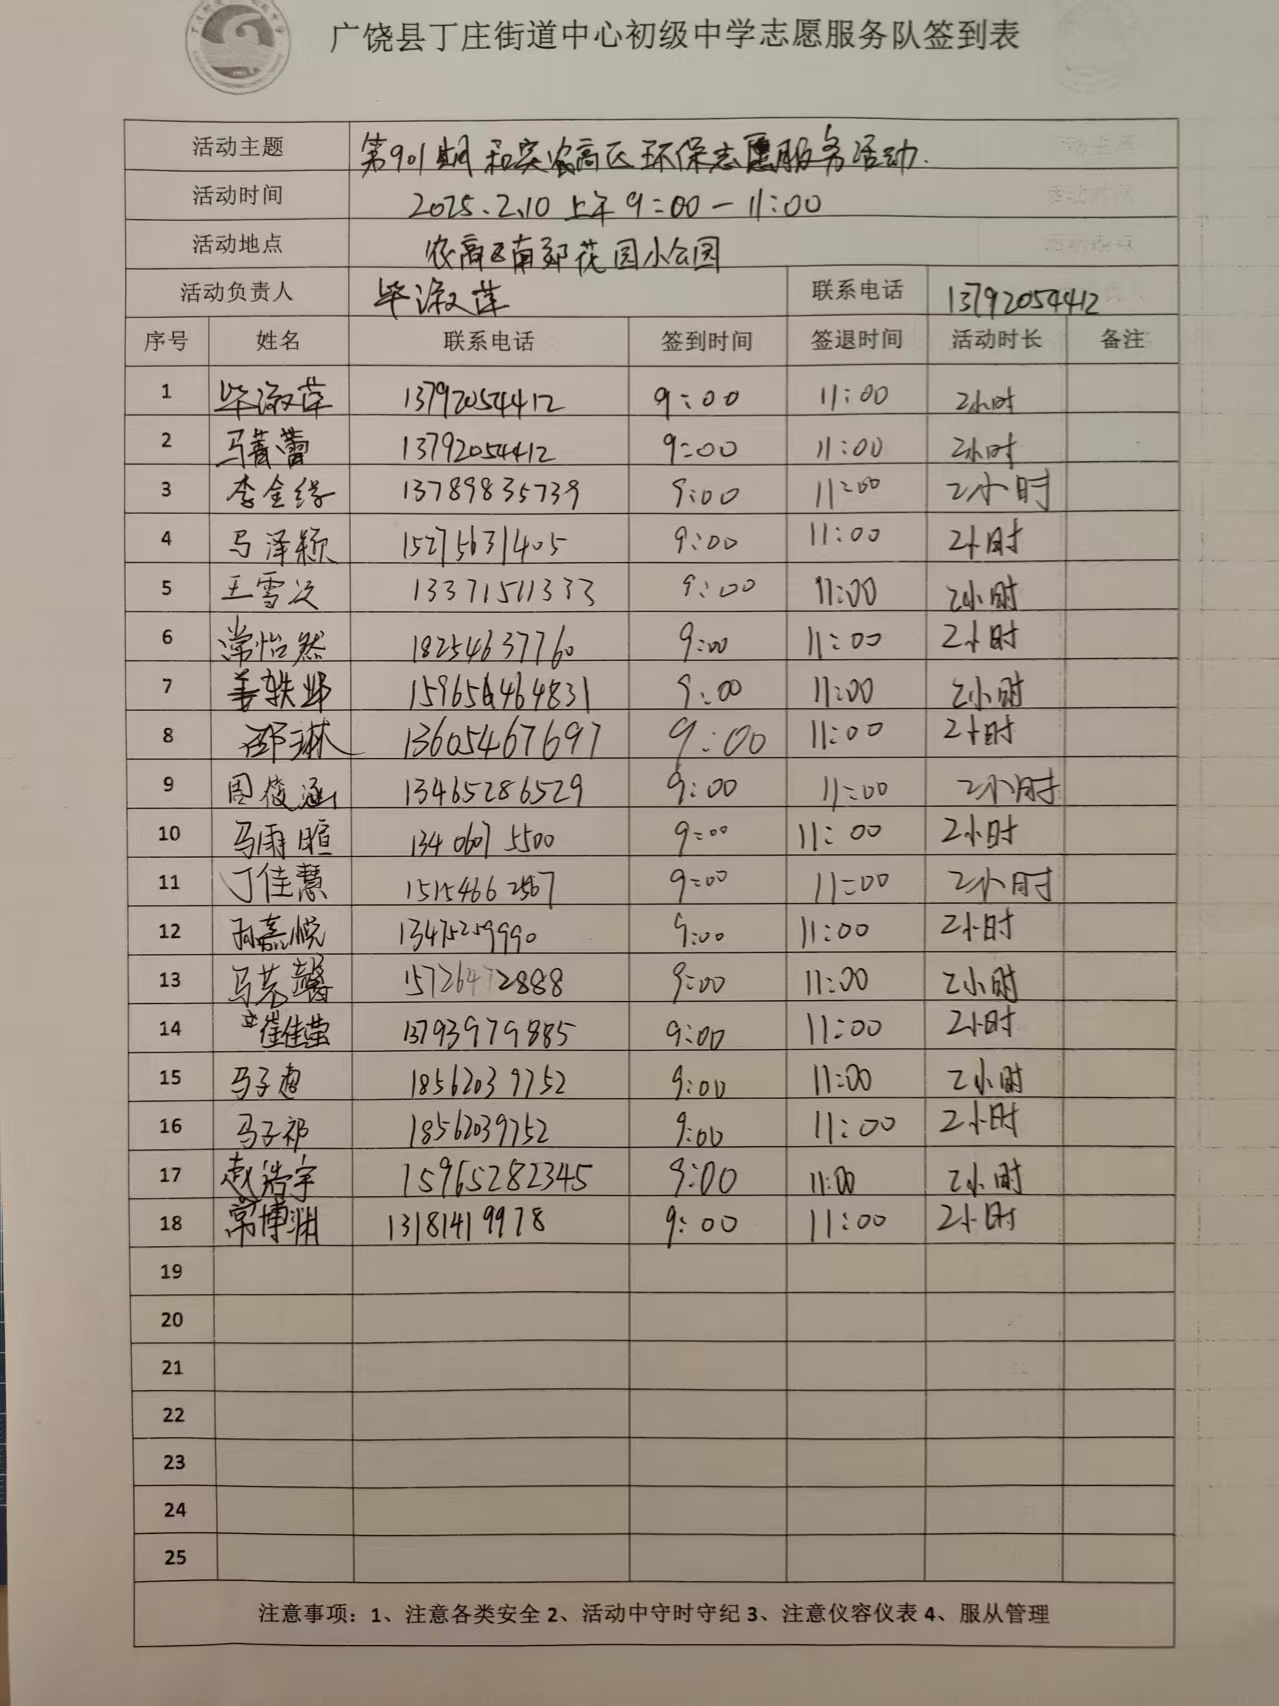 广饶县丁庄街道中心初级中学志愿服务队签到表
活动主题 第901期和实农高区环保志愿服务活动.
活动时间 2025.2.10 上午 9:00-11:00
活动地点 农高区南郊花园小公园
活动负责人 毕淑萍 联系电话 13792054412
序号 姓名 联系电话 签到时间 签退时间 活动时长 备注
1 毕淑萍 13792054412 9:00 11:00 2小时
2 马菁蕾 13792054412 9:00 11:00 2小时
3 李金缘 13789835739 9:00 11:00 2小时
4 马泽颖 15275631405 9:00 11:00 2小时
5 王雪 13371511333 9:00 11:00 2小时
6 常怡然 18254637760 9:00 11:00 2小时
7 姜轶 9:00 11:00 2小时
8 邵琳 13605467697 9:00 11:00 2小时
9 周俊涵 13465286529 9:00 11:00 2小时
10 马雨暄 13406075500 9:00 11:00 2小时
11 丁佳慧 15154662567 9:00 11:00 2小时
12 孙嘉悦 13475259990 9:00 11:00 2小时
13 马若馨 15726472888 9:00 11:00 2小时
14 崔佳莹 13793979885 9:00 11:00 2小时
15 马子 18562039752 9:00 11:00 2小时
16 马子祁 18562039752 9:00 11:00 2小时
17 赵浩宇 15965282345 9:00 11:00 2小时
18 常博渊 13181419978 9:00 11:00 2小时
19
20
21
22
23
24
25
注意事项：1、注意各类安全 2、活动中守时守纪 3、注意仪容仪表 4、服从管理